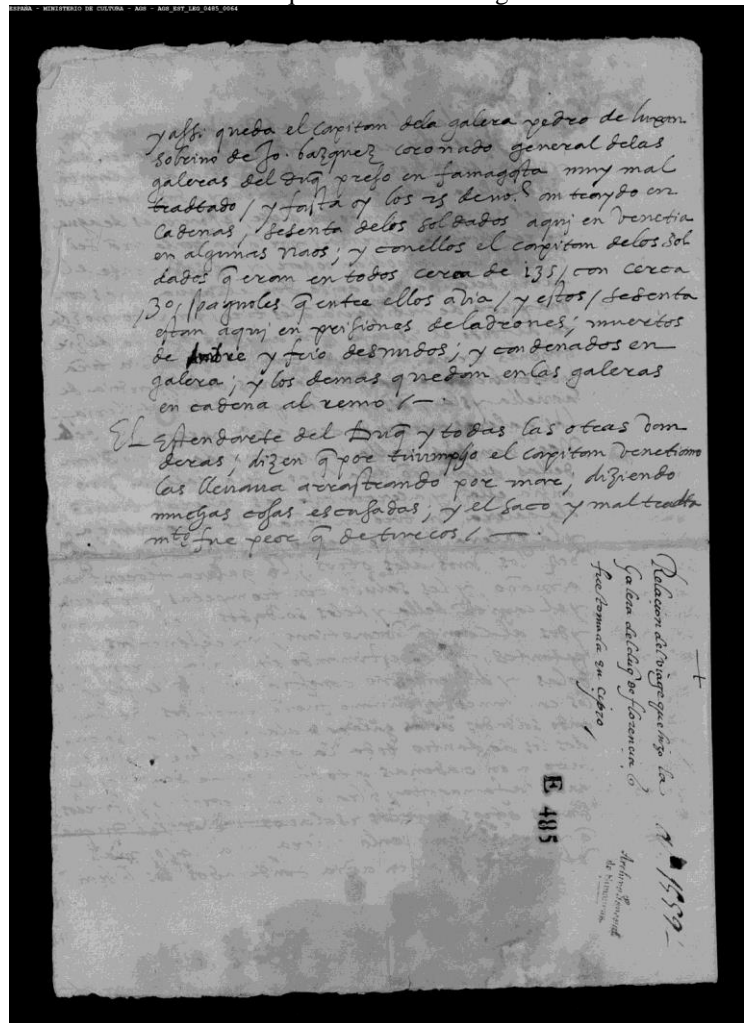 ESPAÑA - MINISTERIO DE CULTURA - AGS - AGS_EST_LEG_0485_0064
y assi queda el capitan dela galera pedro de
sobrino de Jo. bazquez coronado general delas
galeras del duq̃ preso en famagosta muy mal
tradtado / y fasta oy los 25 de nov.e an traydo en
cadenas, sesenta delos soldados aqui en venetia
en algunas naos; y con ellos el capitan delos sol
dados q̃ eran en todos cerca de 135 / con cerca
30, spagnoles q̃ entre ellos avia / y estos / sesenta
estan aqui en prisiones de ladrones; muertos
de fambre y frio desnudos; y condenados en
galera; y los demas quedan en las galeras
en cadena al remo / —.
El estendarte del Duq̃ y todas las otras van
deras; dizen q̃ por triumpho el capitan venetiano
las llevava arrastrando por mare, diziendo
muchas cosas escusadas; y el saco y mal tracta
mto fue peor q̃ de turcos / —.
Relacion del viage que hizo la
Galera del duq̃ de florencia q̃
fue tomada en cipro /
1559
E 485
Archivo General
de Simancas